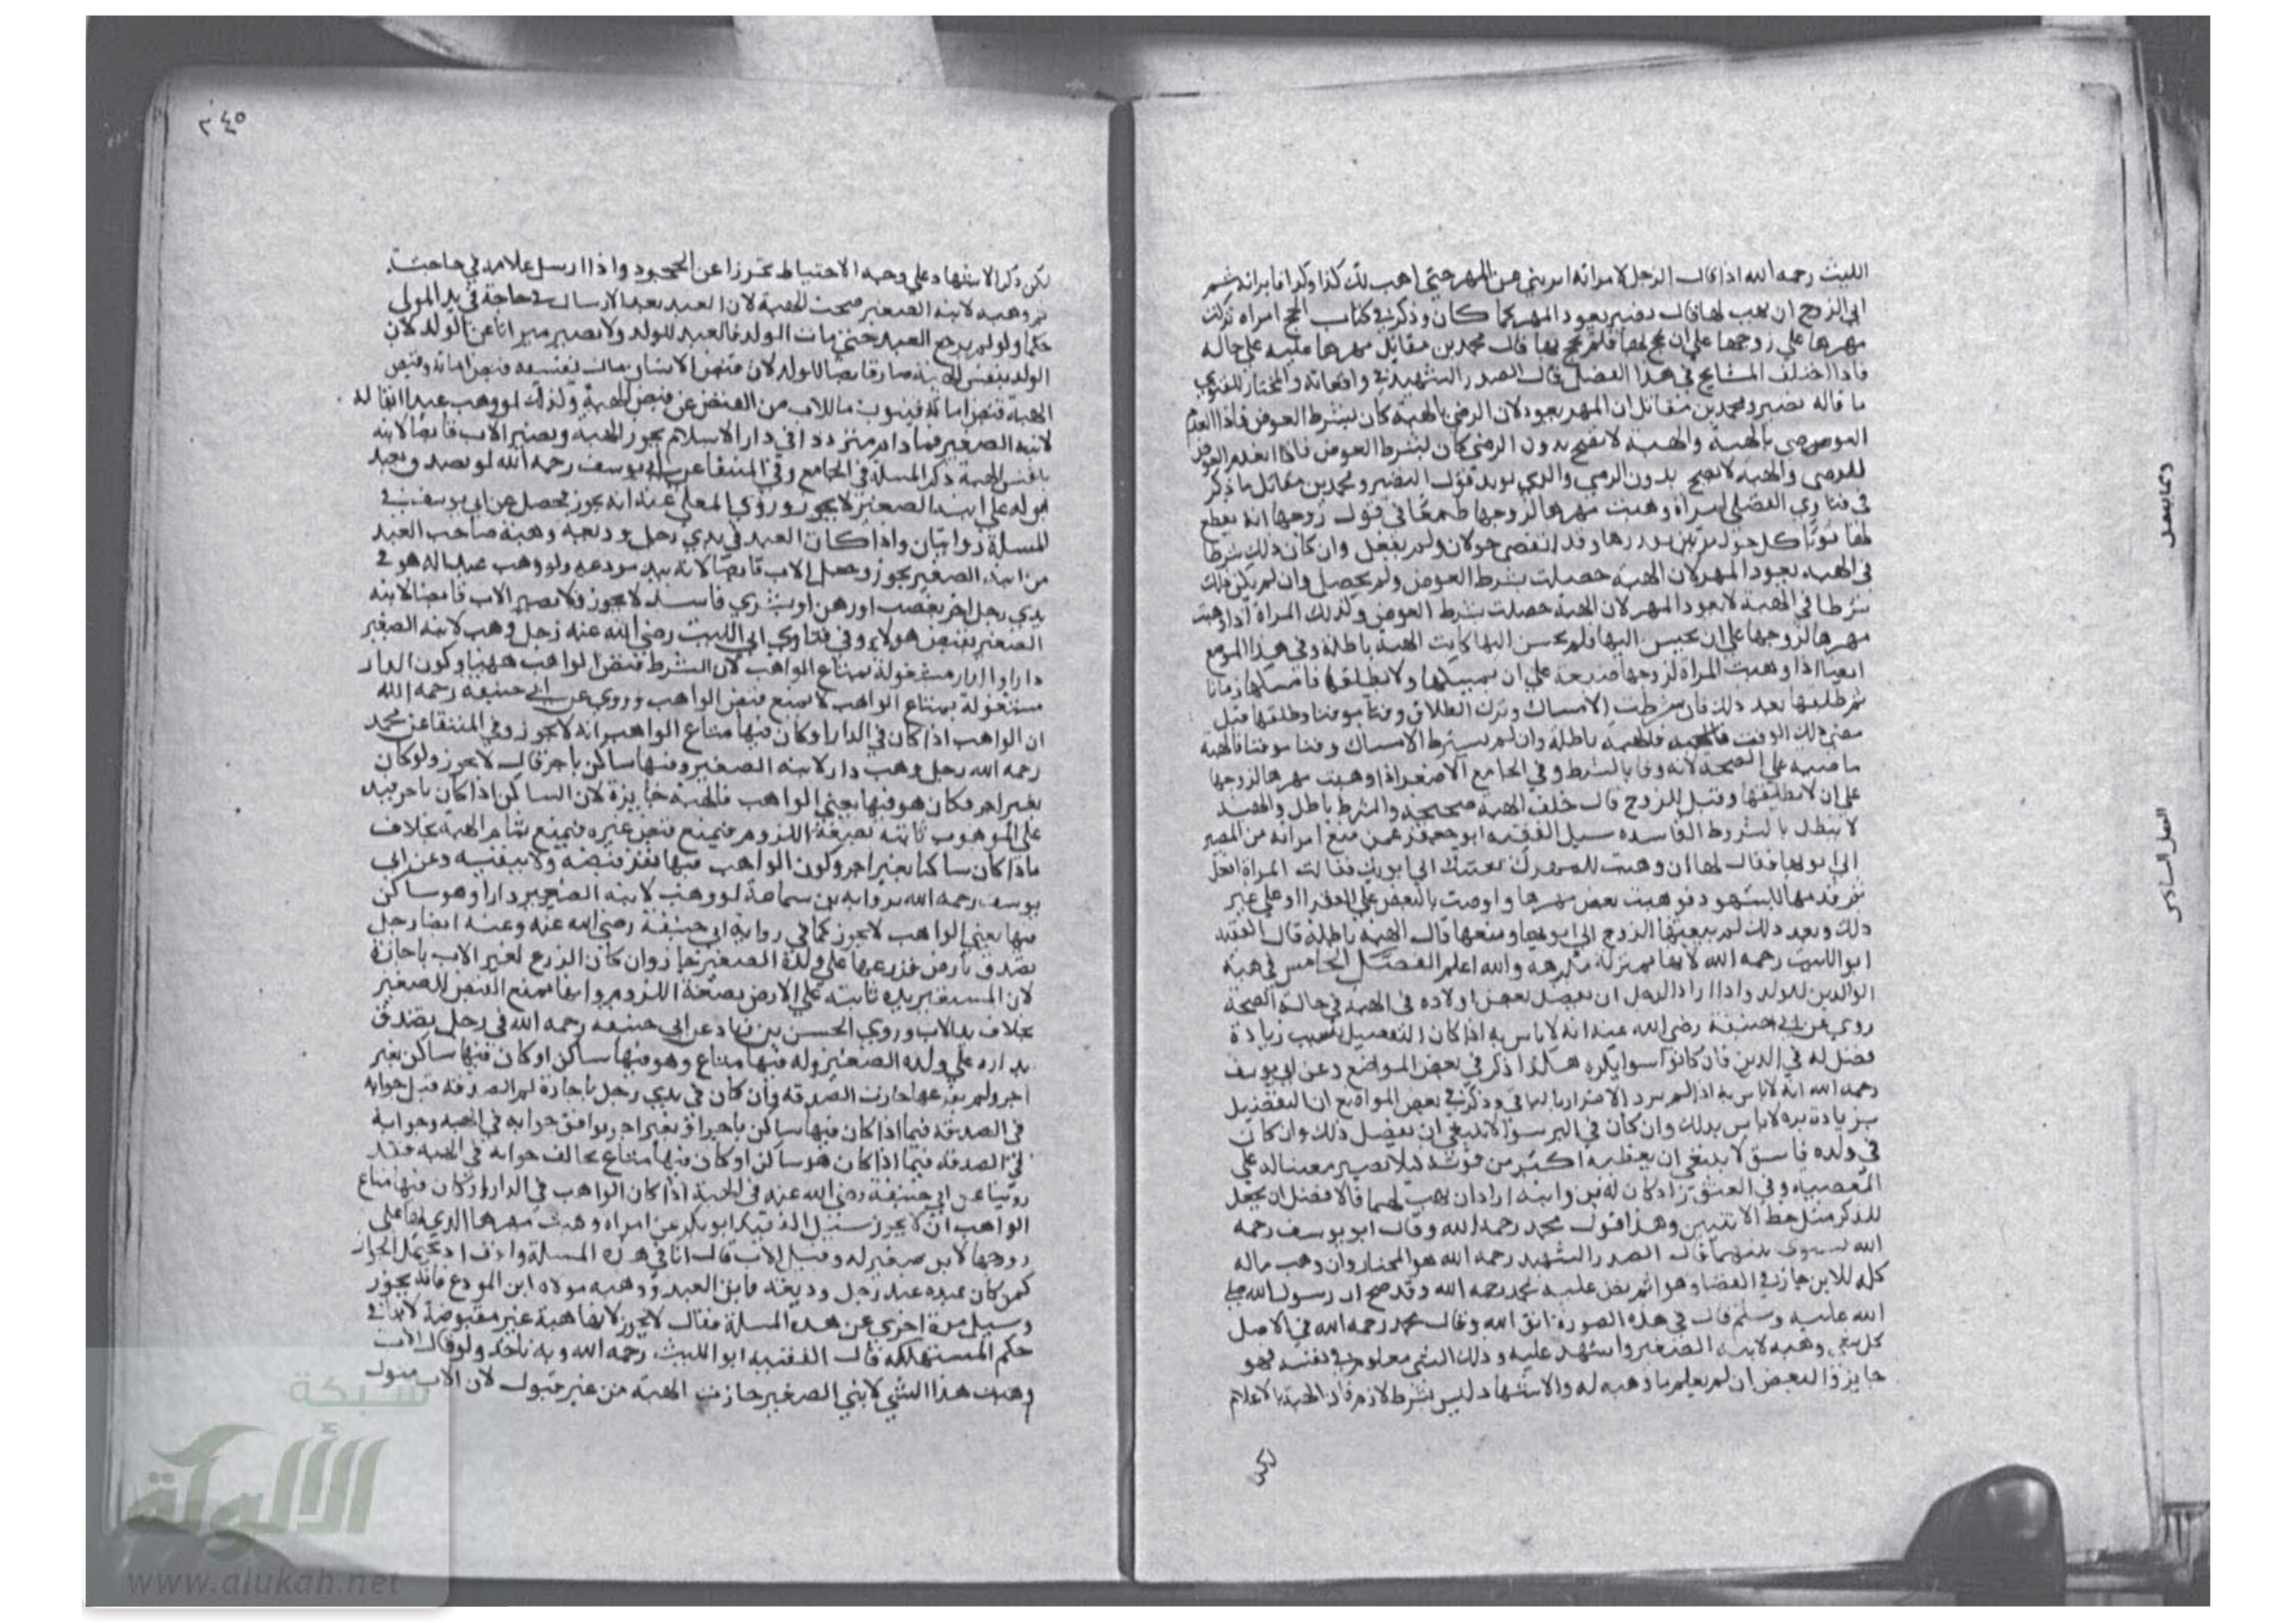 الليث رحمه الله اذا قال الرجل لامراته ابريني من المهر حتى اهب لك كذا وكذا فابراته ثم
ابى الزوج ان يهب لها قال نصير يعود المهر كما كان وذكر في كتاب الحج امراه تركت
مهرها على زوجها على ان يحج بها فلم يحج بها قال محمد بن مقاتل مهرها عليه على حاله
فاذا اختلف المشايخ في هذا الفصل قال الصدر الشهيد في واقعاته والمختار للفتوى
ما قاله نصير ومحمد بن مقاتل ان المهر يعود لان الرضى بالهبة كان بشرط العوض فاذا انعدم
العوض بالهبة والهبة لا تصح بدون الرضى كان بشرط العوض فاذا انعدم العوض
الرضى والهبه لا تصح بدون الرضى والذي يويد قول النصير ومحمد بن مقاتل ما ذكر
في فتاوي الفضلى امراة وهبت مهرها لزوجها طمعا في قول زوجها انه يقطع
لها ثوبا كل حول مرتين وقد انقضى حولان ولم يفعل وان كان ذلك شرطا
في الهبه يعود المهر لان الهبة حصلت بشرط العوض ولم يحصل وان لم يكن ذلك
شرطا في الهبة لا يعود المهر لان الهبة حصلت بشرط العوض وكذلك المراة اذا وهبت
مهرها لزوجها على ان يحسن اليها فلم يحسن اليها كانت الهبة باطلة وفي هذا الموضع
ايضا اذا وهبت المراة لزوجها على ان يمسكها ولا يطلقها فامسكها زمانا
ثم طلقها بعد ذلك فان شرطت الامساك وترك الطلاق وقتا موقتا وطلقها قبل
مضي ذلك الوقت فالهبة باطلة وان لم يشترط الامساك وقتا موقتا فالهبة
ماضيه على الصحة لانه وفا بالشرط وفي الجامع الاصغر اذا وهبت مهرها لزوجها
على ان لا يطلقها وقبل الزوج قال خلف الهبة صحيحة والشرط باطل والهبة
لا تبطل بالشروط الفاسده سيل الفقيه ابو جعفر عمن منع امراته من المصير
الى ابويها فقال لها ان وهبت لي مهرك بعثتك الى ابويك فقالت المراة افعل
ثم قدمها للشهود فوهبت بعض مهرها واوصت بالبعض على الفقرا او على غير
ذلك وبعد ذلك لم يبعثها الزوج الى ابويها ومنعها قال الهبة باطلة قال الفقيه
ابو الليث رحمه الله لانها بمنزلة مكرهة والله اعلم الفصل الخامس في هبة
الوالدين للولد واذا اراد الرجل ان يفضل بعض اولاده في الهبة في حالة الصحة
روي عن ابي حنيفة رضي الله عنه انه لا باس به اذا كان التفضيل بسبب زيادة
فضل له في الدين فان كانوا سوا يكره هكذا ذكر في بعض المواضع وعن ابي يوسف
رحمه الله انه لا باس به اذا لم يرد الاضرار بالباقي وذكر في بعض المواضع ان التفضيل
بزيادة بره لا باس بذلك وان كان في البر سوا لا ينبغي ان يفضل ذلك وان كان
في ولده فاسق لا ينبغي ان يعطيه اكثر من قوته كيلا يصير معينا له على
المعصيه وفي العيون رجل كان له ابن وابنة اراد ان يهب لهما فالافضل ان يجعل
للذكر مثل حظ الانثيين وهذا قول محمد رحمه الله وقال ابو يوسف رحمه
الله يسوى بينهما قال الصدر الشهيد رحمه الله هو المختار وان وهب ماله
كله للابن جاز في القضا وهو اثم نص عليه محمد رحمه الله وقد صح ان رسول الله صلى
الله عليه وسلم قال في هذه الصورة اتق الله وقال محمد رحمه الله في الاصل
كل شي وهبه لابنه الصغير واشهد عليه وذلك الشي معلوم في نفسه فهو
جايز والاشهاد ليس بشرط لازم فان الهبة بالاعلام
لكن
وما يتصل
الفصل السادس
٣٤٥
لكن ذكر الاشهاد على وجه الاحتياط تحرزا عن الجحود واذا ارسل غلامه في حاجته
ثم وهبه لابنه الصغير صحت الهبة لان العبد بعد الارسال في حاجة في يد المولى
حكما ولو لم يرجع العبد حتى مات الولد فالعبد للولد ولا يصير ميراثا عن الوالد لان
الولد بنفس الهبة صار قابضا للولد لان قبض الانسان مال نفسه قبض امانة وقبض
الهبة قبض امانة فينوب ما للاب من القبض عن قبض الهبة وكذلك لو وهب عبدا ابقا له
لابنه الصغير فما دام مترددا في دار الاسلام يجوز الهبة ويصير الاب قابضا لابنه
بنفس الهبة ذكر المسلة في الجامع وفي المنتقا عن ابي يوسف رحمه الله لو تصدق بعبد
ابق له على ابنه الصغير لا يجوز وروى المعلى عنه انه يجوز فحصل عن ابي يوسف في
المسلة روايتان واذا كان العبد في يدي رجل وديعه وهبة صاحب العبد
من ابنه الصغير يجوز ويجعل الاب قابضا لابنه بيد مودعه ولو وهب عبدا له هو في
يدي رجل اخر بغصب او رهن او بشري فاسد لا يجوز ولا يصير الاب قابضا لابنه
الصغير بقبض هولاء وفي فتاوي ابي الليث رضي الله عنه رجل وهب لابنه الصغير
دارا والدار مشغولة بمتاع الواهب لان الشرط قبض الواهب ههنا وكون الدار
مشغولة بمتاع الواهب لا يمنع قبض الواهب وروي عن ابي حنيفه رحمه الله
ان الواهب اذا كان في الدار او كان فيها متاع الواهب انه لا يجوز وفي المنتقا عن محمد
رحمه الله رجل وهب دار لابنه الصغير وفيها ساكن باجر قال لا يجوز ولو كان
بغير اجر وكان هو فيها يعني الواهب فالهبة جايزة لان الساكن اذا كان باجر فيده
على الموهوب ثابته بصفة اللزوم فيمنع قبض غيره فيمنع تمام الهبة بخلاف
ما اذا كان ساكنا بغير اجر وكون الواهب فيها يقرر قبضه ولا ينفيه وعن ابي
يوسف رحمه الله برواية بن سماعة لو وهب لابنه الصغير دارا وهو ساكن
فيها يعني الواهب لا يجوز كما في رواية ابي حنيفة رضي الله عنه وعنه ايضا رجل
تصدق بارض قد زرعها على ولده الصغير جاز وان كان الزرع لغير الاب باجازة
لان المستاجر يده ثابته على الارض بصفة اللزوم وانها تمنع القبض للصغير
بخلاف يد الاب وروي الحسن بن زياد عن ابي حنيفه رحمه الله في رجل تصدق
بداره على ولده الصغير وله فيها متاع وهو فيها ساكن او كان فيها ساكن بغير
اجر ولم يفرغها جازت الصدقه وان كان في يدي رجل باجارة لم الصدقه قيل جوابه
في الصدقه فيما اذا كان فيها ساكن باجر او بغير اجر يوافق جوابه في الهبه وجوابه
في الصدقه فيما اذا كان هو ساكن او كان فيها متاع يخالف جوابه في الهبه فقد
روينا عن ابي حنيفة رضي الله عنه في الهبة اذا كان الواهب في الدار او كان فيها متاع
الواهب ان لا يجوز سئل الفقيه ابو بكر عن امراه وهبت مهرها الذي لها على
زوجها لابن صغير له وقبل الاب قال انا في هذه المسلة واقف اذ يحتمل الجواز
كمن كان عبده عند رجل وديعه فابق العبد ووهبه مولاه ابن المودع فانه يجوز
وسيل مرة اخري عن هذه المسلة فقال لا يجوز لانها هبة غير مقبوضة لانها في
حكم المستهلكه قال الفقيه ابو الليث رحمه الله وبه ناخذ ولو قال الاب
وهبت هذا الشي لابني الصغير جازت الهبة من غير قبول لان الاب
شبكة
الألوكة
www.alukah.net